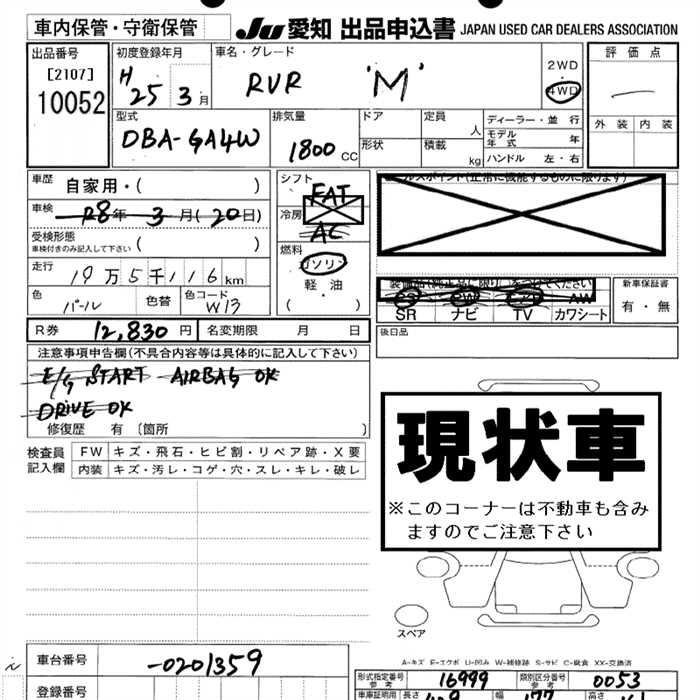 車内保管・守衛保管 JU 愛知 出品申込書 JAPAN USED CAR DEALERS ASSOCIATION
出品番号 初度登録年月 車名・グレード 2WD 評価点
[2107] H 25 3月 RVR 'M' ・
10052 4WD
型式 排気量 ドア 定員 ディーラー・並行 外装 内装
DBA-GA4W 1800CC 人 モデル年式 年
形状 積載 kg ハンドル 左・右
車歴 自家用・( ) シフト FAT
車検 R8年 3月(20日) 冷房 AC
受検形態 ( )
車検付きのみ記入して下さい
燃料
走行 19万5千116km ガソリン
軽・油
色 パール 色替 色コード W13 ・( )
新車保証書
有・無
SR ナビ TV カワシート
R券 12,830円 名変期限 月 日 後日品
注意事項申告欄(不具合内容等は具体的に記入して下さい)
E/G START AIRBAG OK
DRIVE OK
修復歴 有 〔箇所 〕
現状車
※このコーナーは不動車も含み
ますのでご注意下さい
検査員 FW キズ・飛石・ヒビ割・リペア跡・X要
記入欄 内装 キズ・汚レ・コゲ・穴・スレ・キレ・破レ
スペア
A-キズ E-エクボ U-凹み W-補修跡 S-サビ C-腐食 XX-交換済
車台番号 -0201359
登録番号
形式指定番号 参考 16999 類別区分番号 参考 0053
車庫証明用 長さ 幅 177 高さ